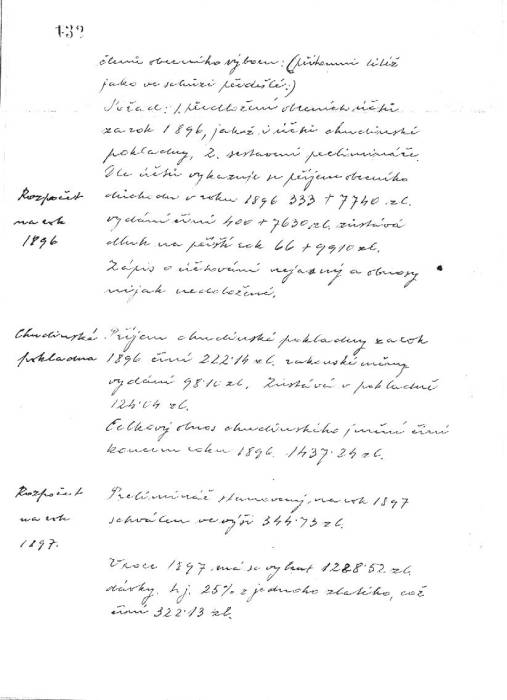 132
členů obecního výboru: (přítomni titíž
jako ve schůzi předešlé:)
Pořad: 1. předložení obecních účtů
za rok 1896, jakož i účtů chudinské
pokladny, 2. sestavení prelimináře.
Dle účtů vykazuje se příjem obecního
Rozpočet
na rok
1896
důchodu v roku 1896 333+7740. zl.
vydání činí 400+7630 zl. zůstává
dluh na příští rok 66+9910 zl.
Zápis o účtování nejasný a obnosy
nijak nedoložené.
Chudinská
pokladna
Příjem chudinské pokladny za rok
1896 činí 222·14 zl. rakouské měny
vydání 98·10 zl. Zůstává v pokladně
124·04 zl.
Celkový obnos chudinského jmění činí
koncem roku 1896. 1437·24 zl.
Rozpočet
na rok
1897.
Preliminář stanovený na rok 1897
schválen ve výši 344·73 zl.
V roce 1897. má se vybrat 1288·52. zl.
dávky. t.j. 25% z jednoho zlatého, což
činí 322·13 zl.